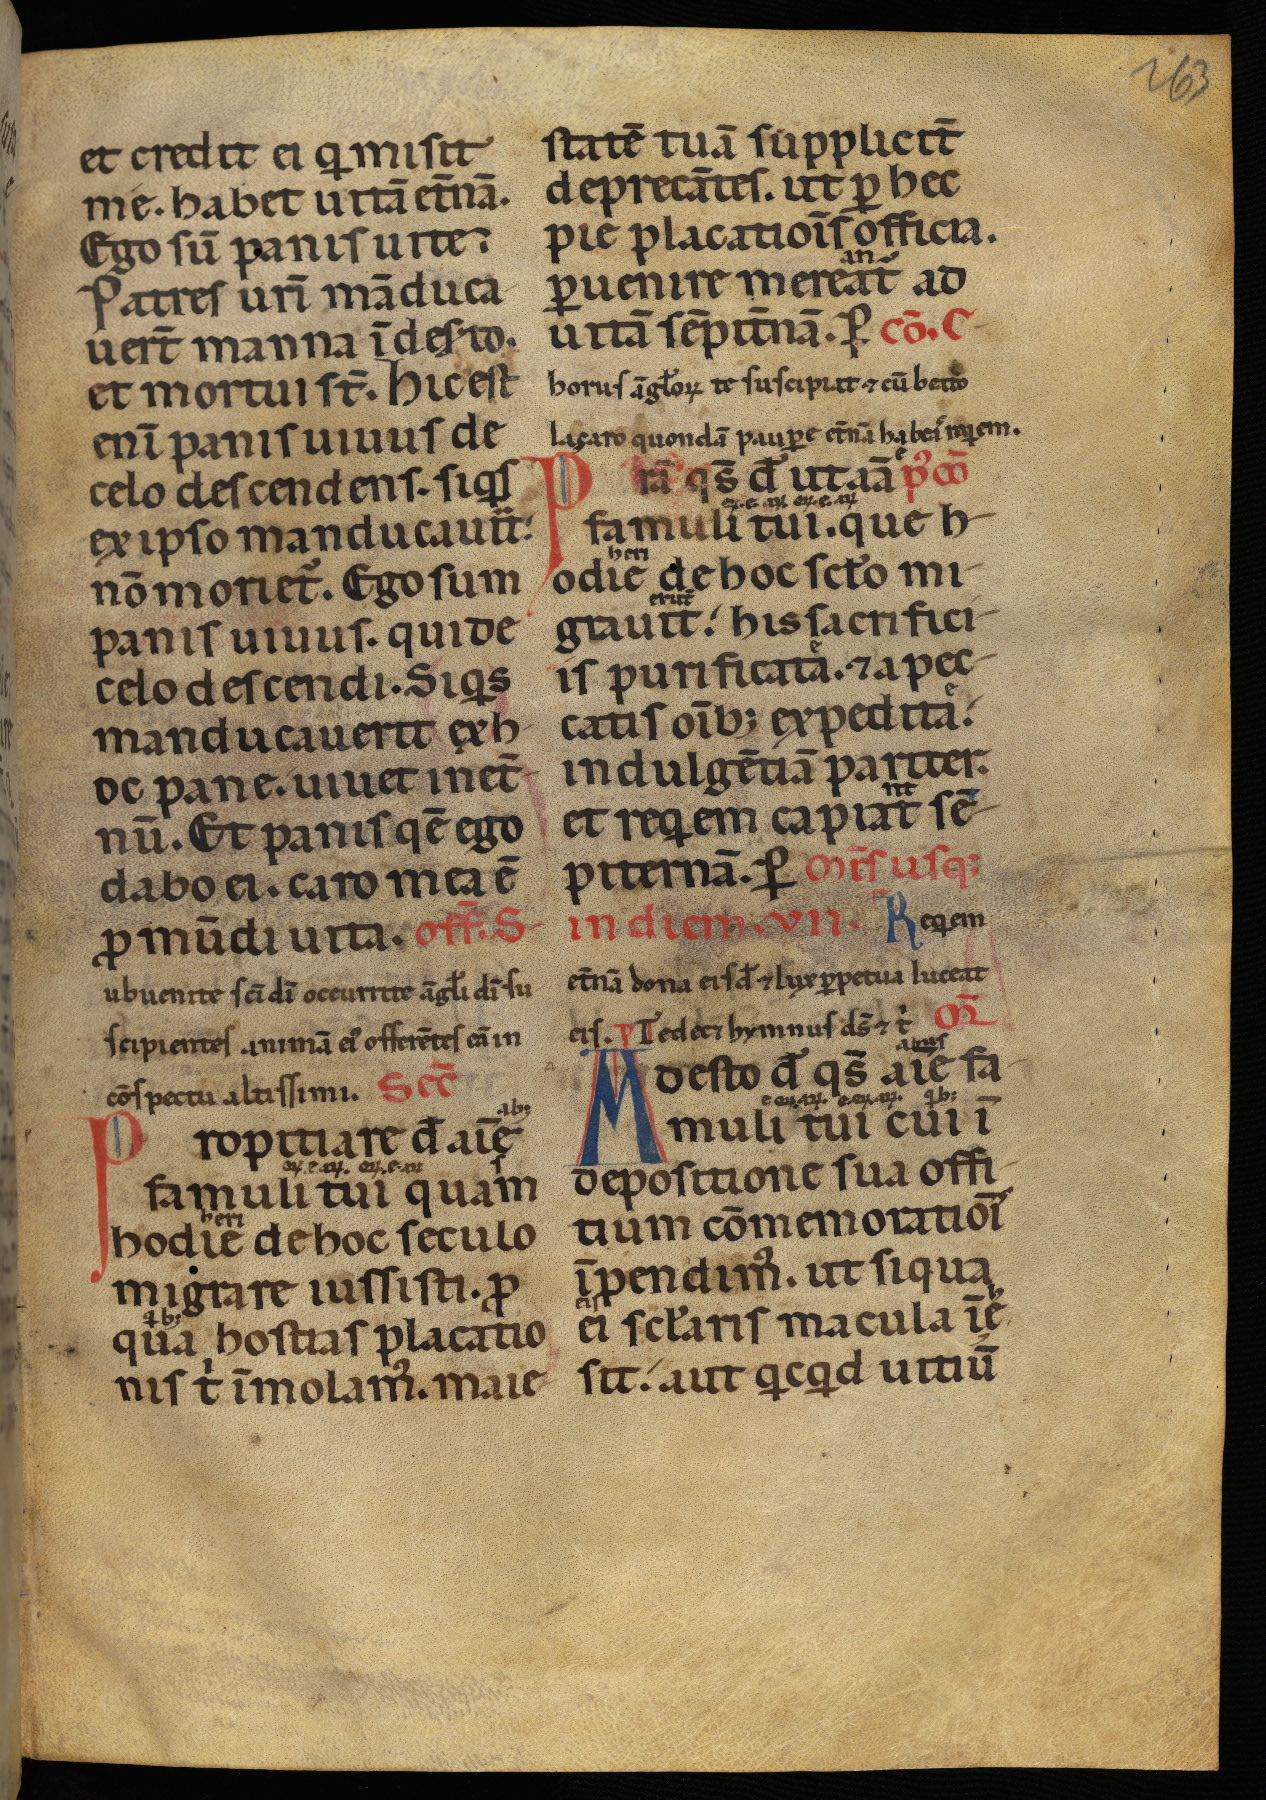 263
et credit ei qi misit
me. habet uitā et̄nā.
Ego sū panis uite.
Patres urī māduca
uert̄ manna ī des̄to.
et mortui st̄. hic est
enī panis uiuus de
celo descendens. siqs
ex ipso manducauit̄.
nō moriet̄. Ego sum
panis uiuus. qui de
celo descendi. Siqs
manducauerit ex h
oc pane. uiuet in et̄
nū. Et panis qē ego
dabo ei. caro mea ē
ꝓ mūdi uita. off̄. S
ubuenite sc̄i dī occurrite āgl̄i dn̄i su
scipientes animā ei offerētes eā in
cōspectu altissimi. Sec̄
Propitiare ds̄ aīe
famuli tui quam
hodie de hoc seculo
migrare iussisti. ꝓ
qua hostias placatio
nis t̄ īmolam᷒. maie
statē tuā suppliciт̄
deprecātes. ut ꝑ hec
pie placatioīs officia.
ꝑuenire mereat̄ ad
uitā sēpit̄nā. ꝑ cō. C
horus āgl̄oꝝ te suscipiat ⁊ cū
laçaro quondā pauꝑe et̄nā
Prā qs̄ ds̄ ut aīā pꝰcō
famuli tui. que h
odie de hoc sclo mi
grauit. his sacrifici
is purificatā. ⁊ a pec
catis oīb; expeditā.
indulgētiā pariter.
et reqiem capiat sē
piternā. ꝑ Mīs usq;
in diem. vii. Reqiem
et̄nā dona eis dn̄e ⁊ lux ꝑpetua luceat
eis. P Te decet hymnus ds̄ ⁊ t̄ Or̄
Adesto dn̄e qs̄ aīe fa
muli tui cui ī
depositione sua offi
tium cōmemoratioī
īpendim᷒. ut siqua
ei scl̄aris macula īe
sit. aut qicqid uitiū